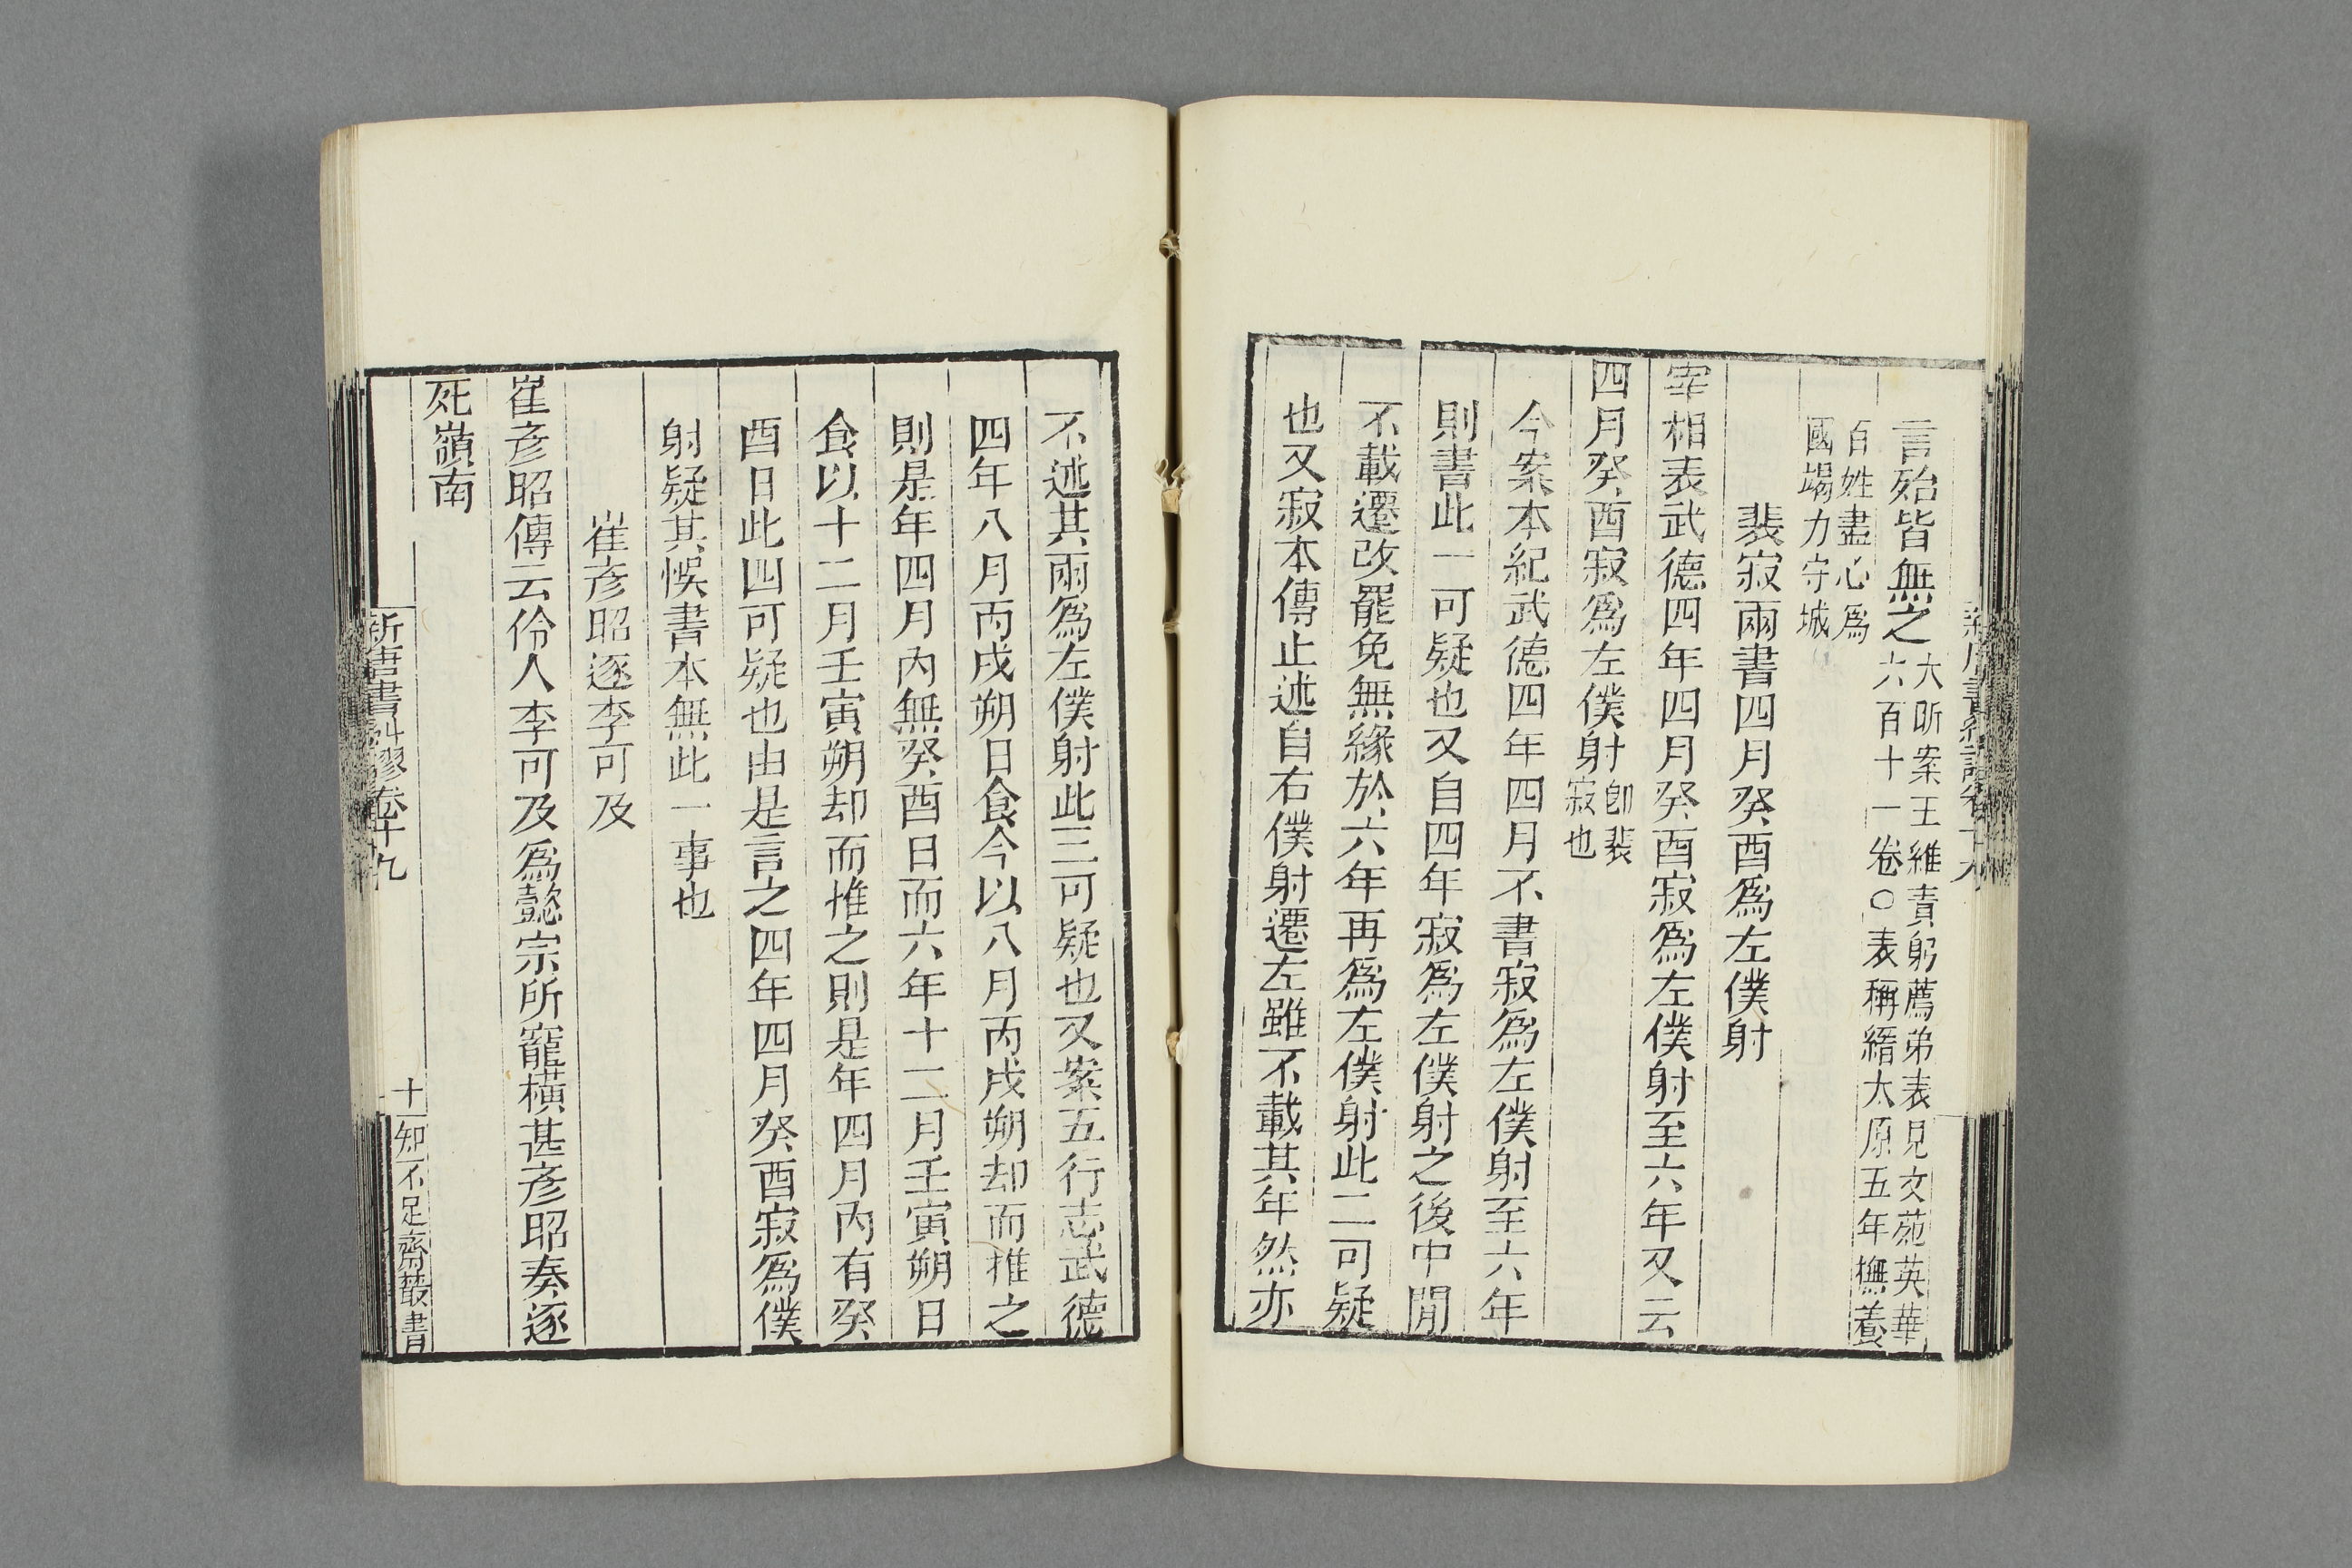 言殆皆無之大昕案王維責躬薦弟表見文苑英華六百十一卷○表稱縉太原五年撫養
百姓盡心爲國竭力守城
裴寂兩書四月癸酉爲左僕射
宰相表武德四年四月癸酉寂爲左僕射至六年又云
四月癸酉寂爲左僕射卽裴寂也
今案本紀武德四年四月不書寂爲左僕射至六年
則書此一可疑也又自四年寂爲左僕射之後中閒
不載遷改罷免無緣於六年再爲左僕射此二可疑
也又寂本傳止述自右僕射遷左雖不載其年然亦
不述其兩爲左僕射此三可疑也又案五行志武德
四年八月丙戌朔日食今以八月丙戌朔却而推之
則是年四月內無癸酉日而六年十二月壬寅朔日
食以十二月壬寅朔却而推之則是年四月內有癸
酉日此四可疑也由是言之四年四月癸酉寂爲僕
射疑其悞書本無此一事也
崔彥昭逐李可及
崔彥昭傳云伶人李可及爲懿宗所寵橫甚彥昭奏逐
死嶺南
新唐書糾繆卷十九
十
知不足齋叢書